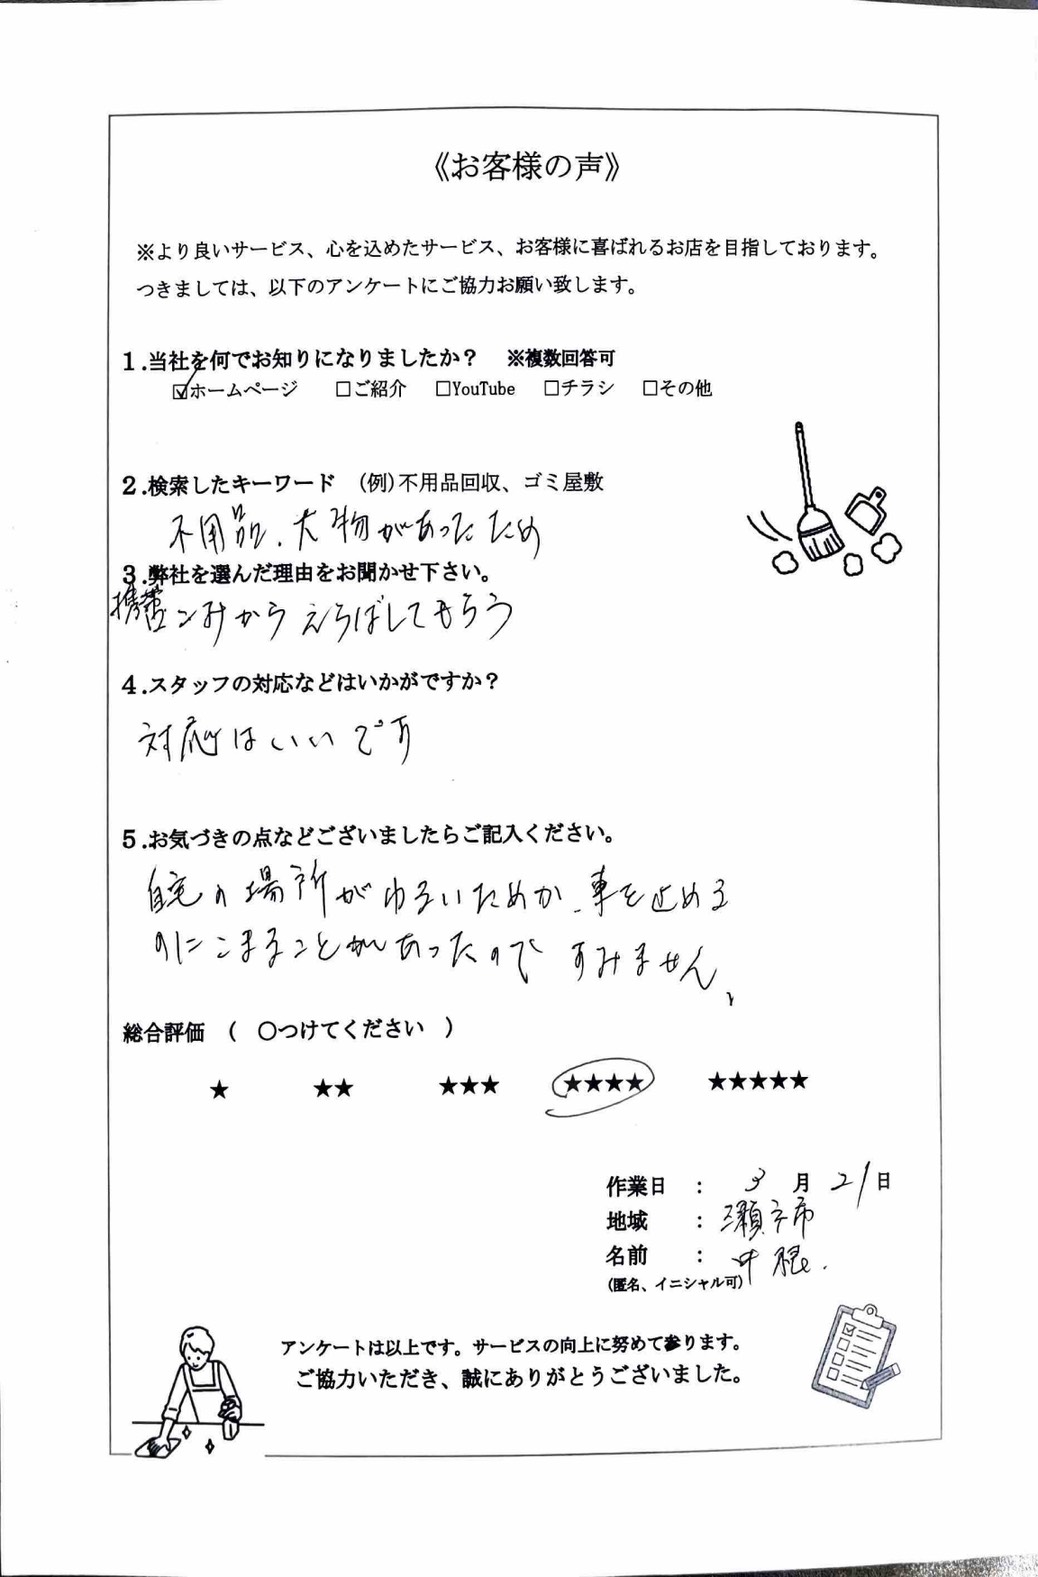 《お客様の声》
※より良いサービス、心を込めたサービス、お客様に喜ばれるお店を目指しております。
つきましては、以下のアンケートにご協力お願い致します。
1.当社を何でお知りになりましたか？　※複数回答可
☑ホームページ　□ご紹介　□YouTube　□チラシ　□その他
2.検索したキーワード　(例)不用品回収、ゴミ屋敷
不用品、大物があったため
3.弊社を選んだ理由をお聞かせ下さい。
携帯 みから えらばしてもらう
4.スタッフの対応などはいかがですか？
対応はいいです
5.お気づきの点などございましたらご記入ください。
自宅の場所がゆるいためか、車を止める
のにこまることがあったので すみません、
総合評価　(　○つけてください　)
★　★★　★★★　★★★★　★★★★★
作業日　：　3　月　21　日
地域　：　瀬戸市
名前　：　中根.
(匿名、イニシャル可)
アンケートは以上です。サービスの向上に努めて参ります。
ご協力いただき、誠にありがとうございました。